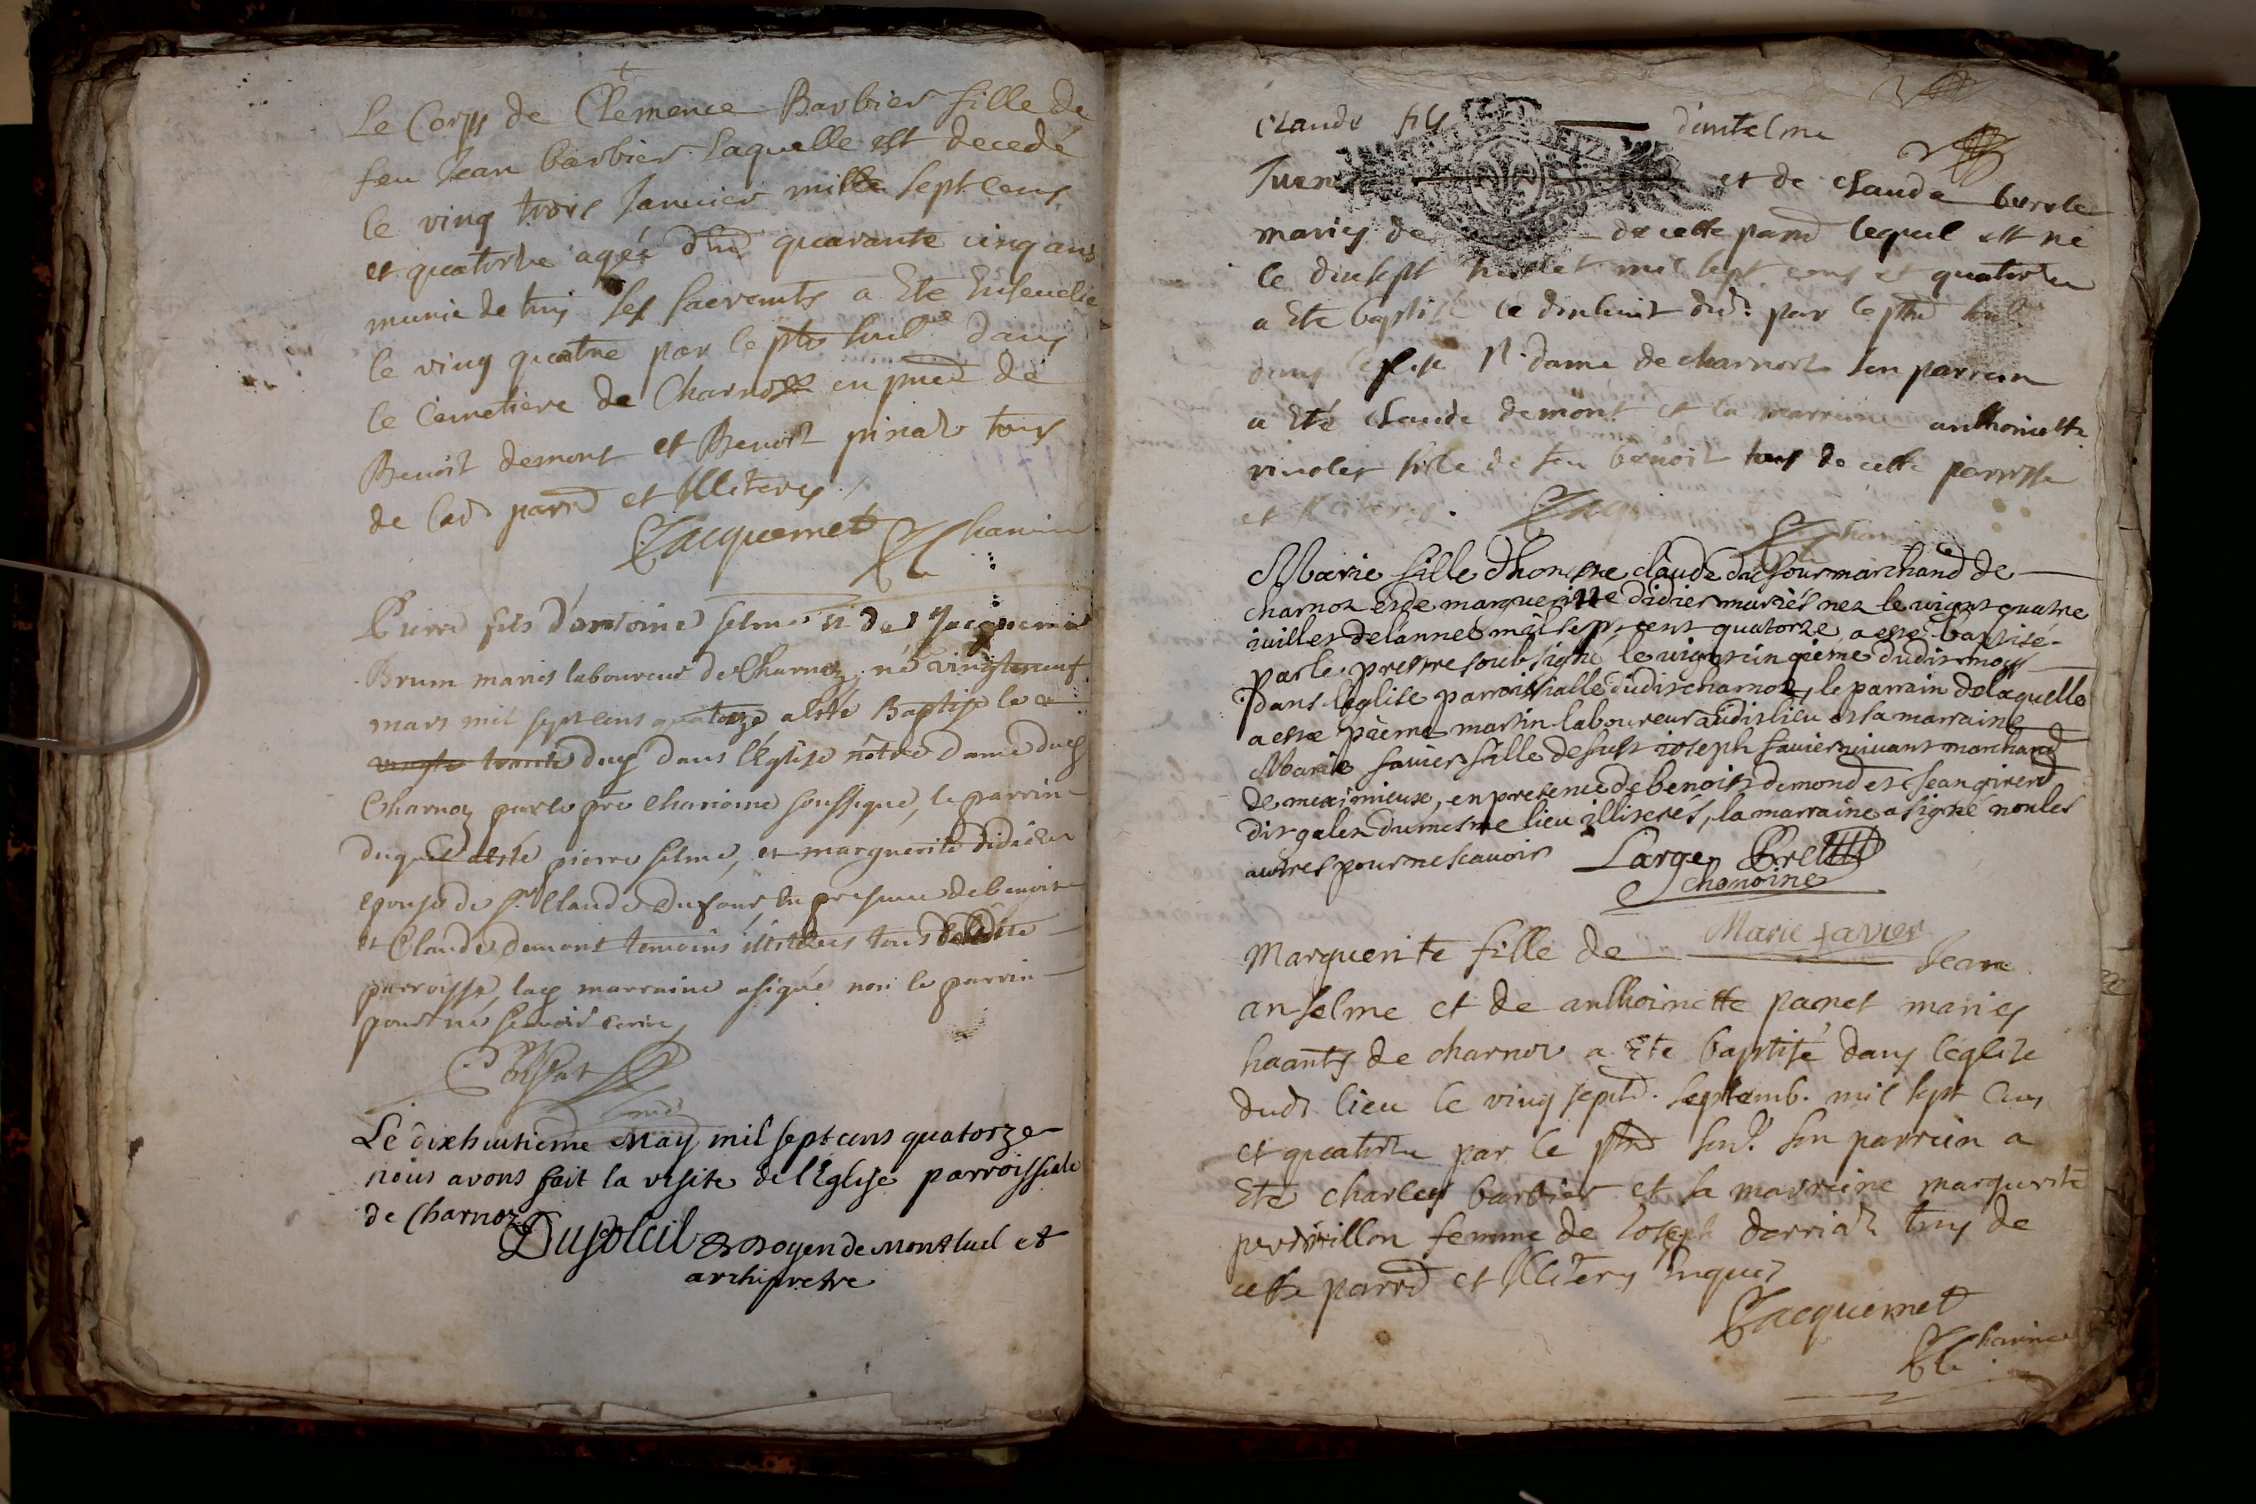 Le Corps de Clemence Barbier fille de
feu Jean barbier laquelle est decedé
le ving trois Janvier mille sept cens
et quatorze agée d'en quarante cinq ans
munie de tous ses sacremts a Eté Ensevelie
le ving quatre par le ptre sous.né dans
le Cemetiere de Charnoz en pnce de
Benoit demont et Benoit pinaz tous
de lad parr et Illiterez
Jacquemet Chanoine
Pierre fils d'antoine selme et de Jacquemine
Brun maries laboureur de Charnoz, né vingtneuf
mars mil sept cens quatorze a esté Baptisé le
vingte trente dug dans l'Eglise nôtre Dame dug
Charnoz par le pre chanoine soussigné, le parrin
duquel a esté pierre selme, et marguerite didier
epouse de Sr Claude Dufour, en presence de benoit
et Claude demont temoins illiteres tous de ladite
parroisse, lag marraine a signé non le parrin
pour ne scavoir ecrire
Le dixhuitieme May mil sept cens quatorze
nous avons fait la visite de l'Eglise parroissiale
de Charnoz
Dusoleil Doyen de Montluel et
archiprestre
Claude fils d'antelme
et de claude
maries de de cette parr lequel est né
le dixsept Juillet mil sept cens et quatorze
a Eté baptisé le dixhuit dud. par le ptre sous.
dans l'eglise N. dame de charnoz son parrein
a Eté claude demont et la marreine anthoinette
vinoler fille de feu benoit tous de cette parroisse
et Illiterez.
Marie fille d'honeste claude dufour marchand de
charnoz et de margueritte didier mariés nez le vignt quatre
iuillet de l'annee mil sept cent quatorze, a esté baptisé
par le prestre soubsigné le vignt cinqieme dudit mois
dans l'eglise parroissialle dudit charnoz, le parrain de laquelle
a esté pierre martin laboureur audit lieu et sa marraine
Marie favier fille de fust ioseph favier vivant marchand
de meximieux, en presence de benoit demond et Jean girerd
dit galer du mesme lieu illiterés, la marraine a signé non les
autres pour ne scavoir Large Pre
chanoine
Marie favier
Marguerite fille de Jean
anselme et de anthoinette panet maries
haants de charnoz a Eté baptisé dans l'eglise
dud. lieu le ving sept. septemb. mil sept Cens
et quatorze par le ptre sous. son parrein a
Eté charles barbier et sa marreine marguerite
perdrillon femme de Joseph derriaz tous de
cette parr et Illiterez Enquis
Jacquemet
Chanoine